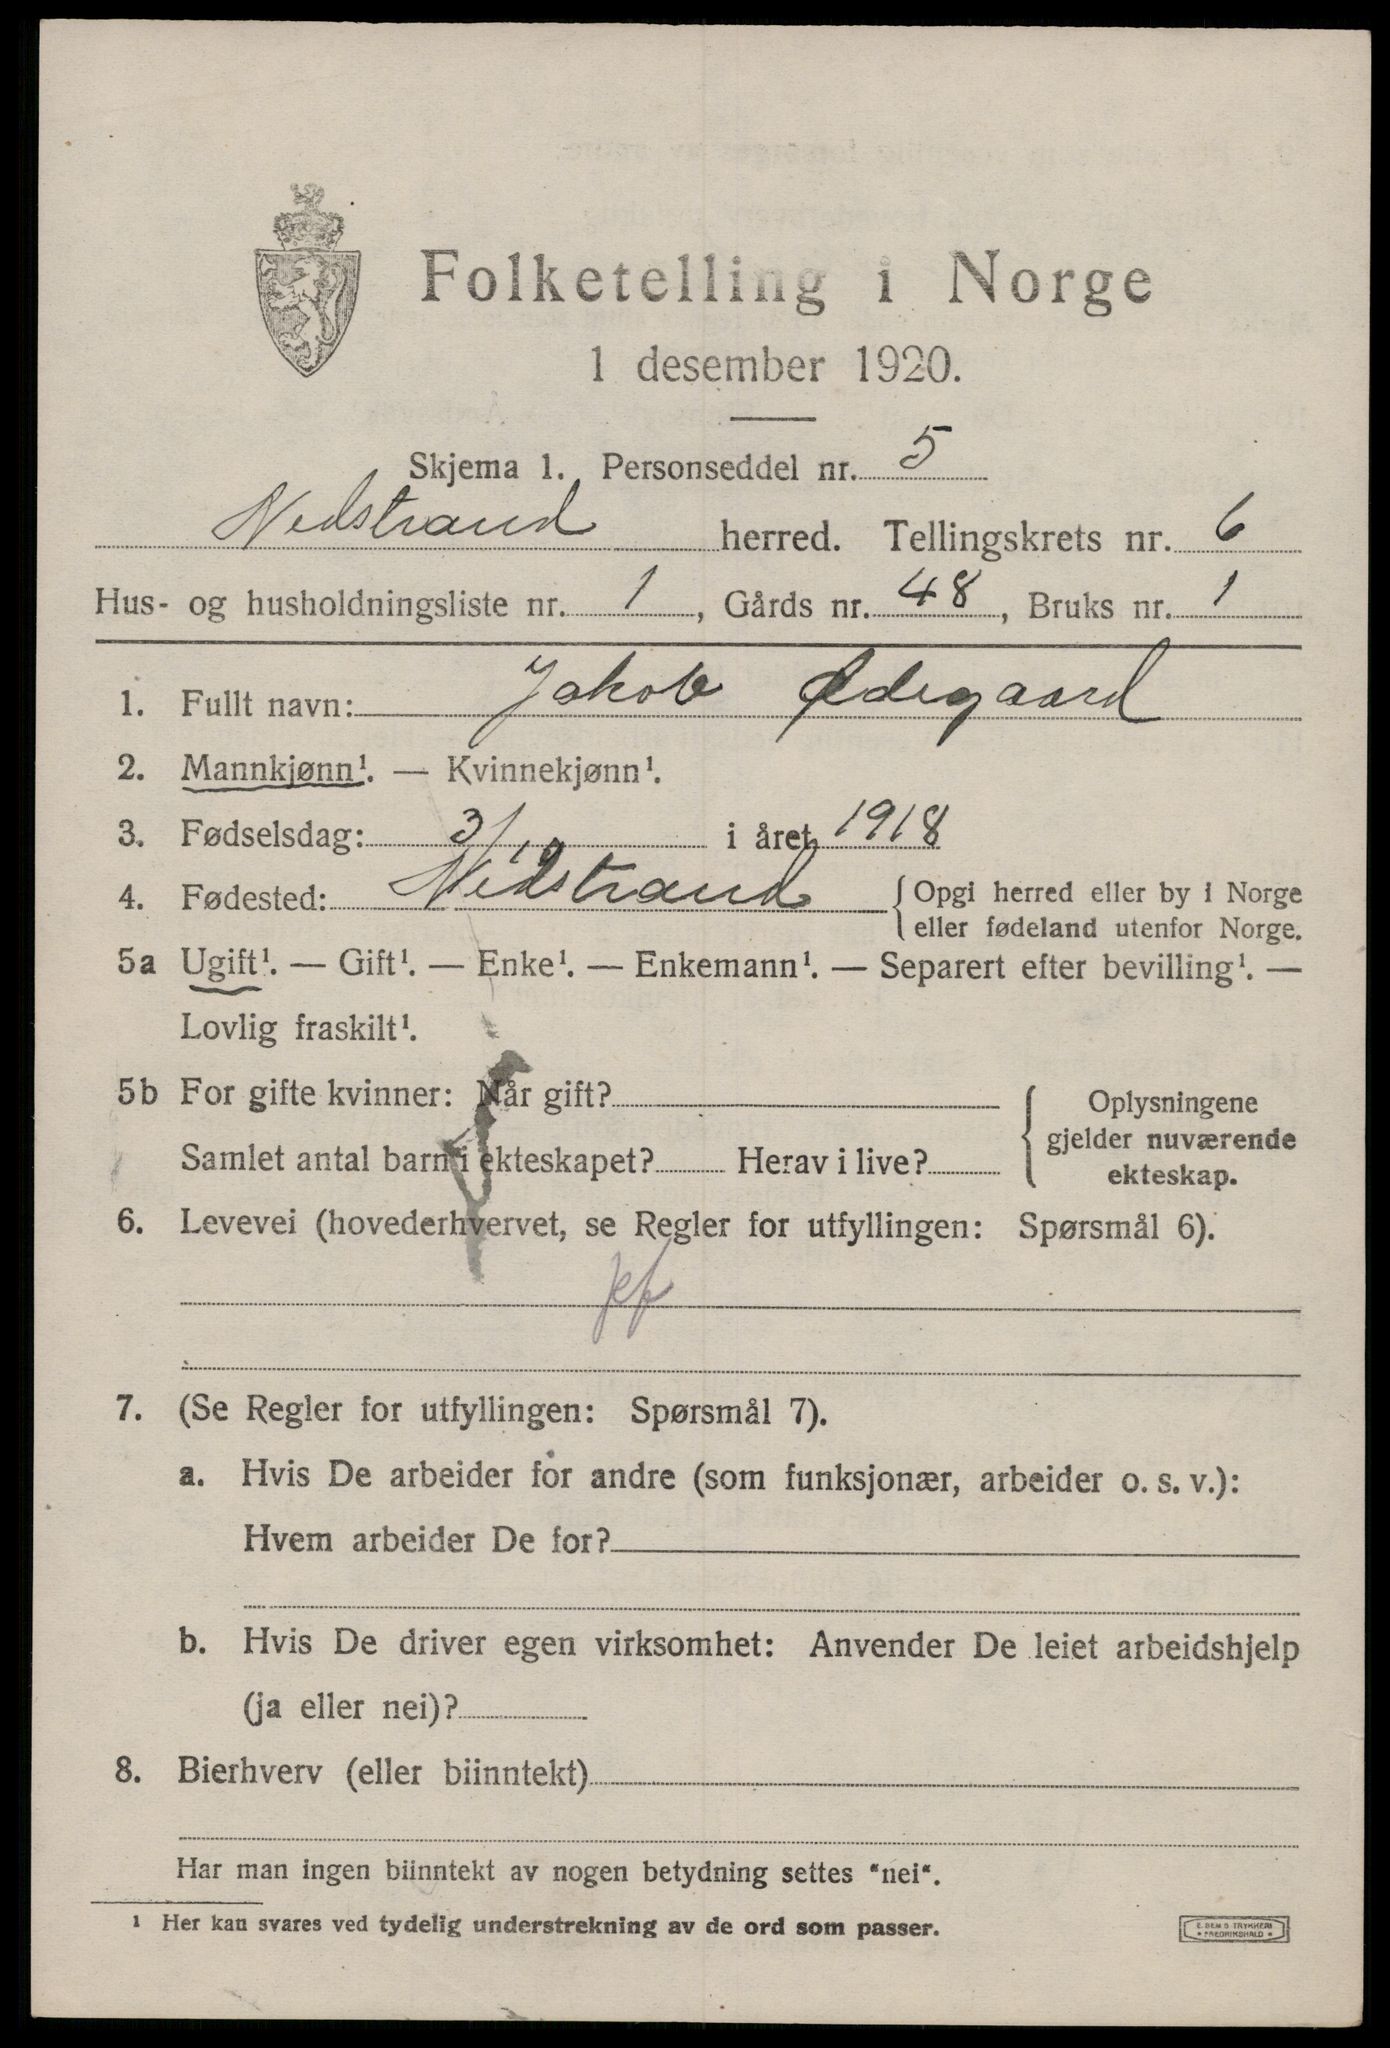 Folketelling i Norge
1 desember 1920.
Skjema 1. Personseddel nr. 5
Nedstrand herred. Tellingskrets nr. 6
Hus- og husholdningsliste nr. 1, Gårds nr. 48, Bruks nr. 1
1. Fullt navn: Jakob Ødegaard
2. Mannkjønn¹. — Kvinnekjønn¹.
3. Fødselsdag: 3/10 i året 1918
4. Fødested: Nedstrand { Opgi herred eller by i Norge
eller fødeland utenfor Norge.
5a Ugift¹. — Gift¹. — Enke¹. — Enkemann¹. — Separert efter bevilling¹. —
Lovlig fraskilt¹.
5b For gifte kvinner: Når gift?
Samlet antal barn i ekteskapet? Herav i live?
{ Oplysningene
gjelder nuværende
ekteskap.
6. Levevei (hovederhvervet, se Regler for utfyllingen: Spørsmål 6).
7. (Se Regler for utfyllingen: Spørsmål 7).
a. Hvis De arbeider for andre (som funksjonær, arbeider o. s. v.):
Hvem arbeider De for?
b. Hvis De driver egen virksomhet: Anvender De leiet arbeidshjelp
(ja eller nei)?
8. Bierhverv (eller biinntekt)
Har man ingen biinntekt av nogen betydning settes "nei".
1 Her kan svares ved tydelig understrekning av de ord som passer.
E. SEM'S TRYKKERI
* FREDRIKSHALD *